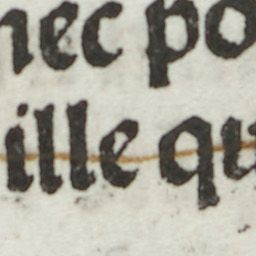 nec po
ille qu